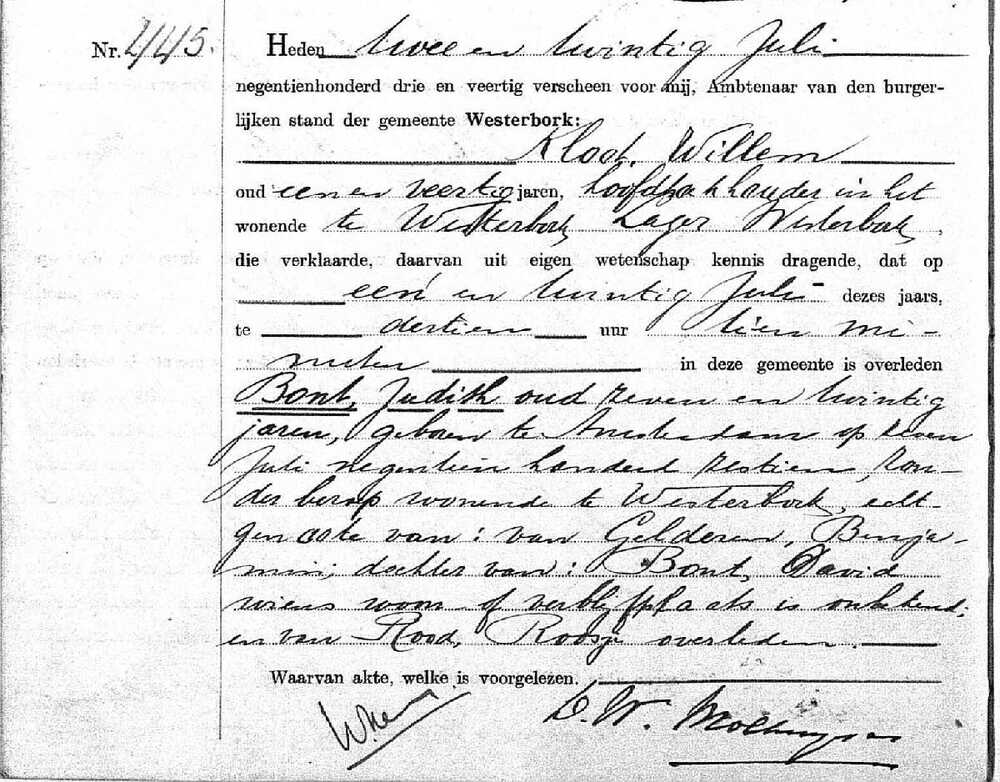 Nr. 445. Heden twee en twintig Juli
negentienhonderd drie en veertig verscheen voor mij, Ambtenaar van den burger-
lijken stand der gemeente Westerbork:
Kloot, Willem
oud een en veertig jaren, hoofdbakhouder in het
wonende te Westerbork, Lager Westerbork,
die verklaarde, daarvan uit eigen wetenschap kennis dragende, dat op
een en twintig Juli dezes jaars,
te dertien uur tien mi-
nuten in deze gemeente is overleden
Bont, Judith oud zeven en twintig
jaren, geboren te Amsterdam op zeven
Juli negentien honderd zestien, zon-
der beroep wonende te Westerbork, echt-
genoote van: van Gelderen, Benja-
min; dochter van: Bont, David
wiens woon- of verblijfplaats is onbekend;
en van Rood, Roosje overleden.
Waarvan akte, welke is voorgelezen.